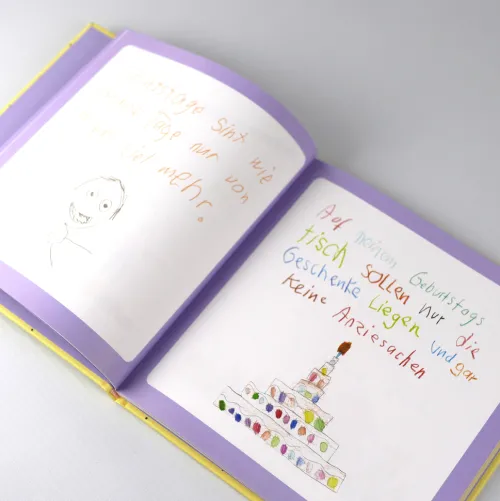 Sint wie
Tage nur von
viel mehr.
Auf meinem Geburtstags
tisch sollen nur die
Geschenke Liegen und gar
Keine Anziesachen